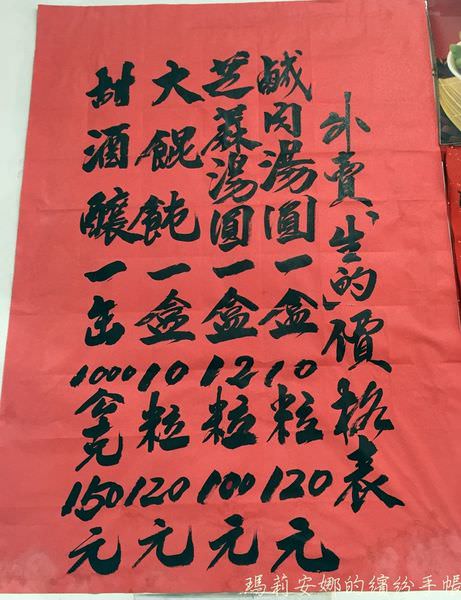 外賣「生的」價格表
鹹肉湯圓一盒10粒120元
芝蔴湯圓一盒12粒100元
大餛飩一盒10粒120元
甜酒釀一缶1000公克150元
瑪莉安娜的繽紛手帳